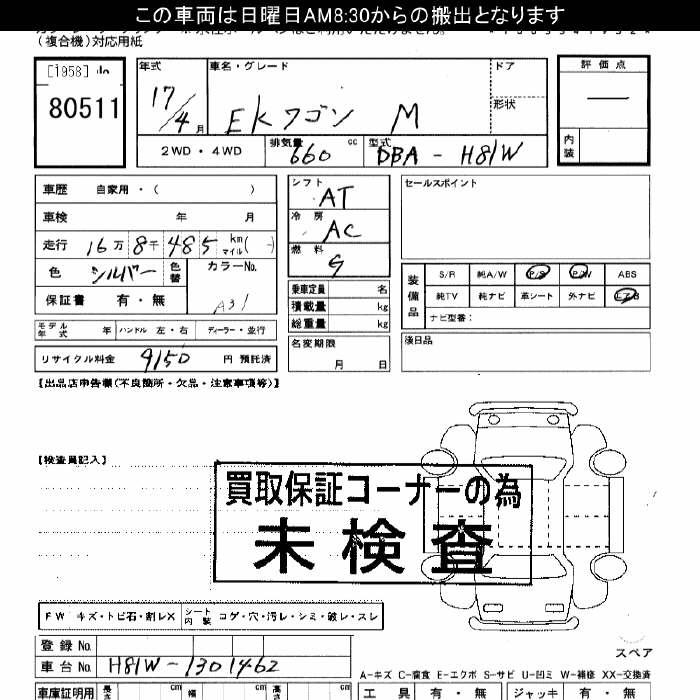 この車両は日曜日AM8:30からの搬出となります
(複合機)対応用紙
[1958]
80511
年式
17/4月
車名・グレード
EKワゴン M
ドア
形状
評価点
―
内装
2WD・4WD
排気量 660 cc
型式 DBA - H81W
車歴 自家用・( )
車検 年 月
走行 16万8千485 km マイル( )
色 シルバー
色替
カラーNo.
A31
保証書 有・無
モデル年式 年
ハンドル 左・右
ディーラー・並行
リサイクル料金 9150 円 預託済
シフト
AT
冷房
AC
燃料
G
乗車定員 名
積載量 kg
総重量 kg
名変期限
月 日
セールスポイント
装備品
S/R 純A/W P/S P/W ABS
純TV 純ナビ 革シート 外ナビ エアB
ナビ型番:
後日品
【出品店申告欄(不良箇所・欠品・注意事項等)】
【検査員記入】
買取保証コーナーの為
未検査
FW キズ・トビ石・割レX
シート内装 コゲ・穴・汚レ・シミ・破レ・スレ
登録No.
車台No. H81W-1301462
スペア
A-キズ C-腐食 E-エクボ S-サビ U-凹ミ W-補修 XX-交換済
車庫証明用
長さ cm
幅 cm
高さ cm
工具 有・無
ジャッキ 有・無